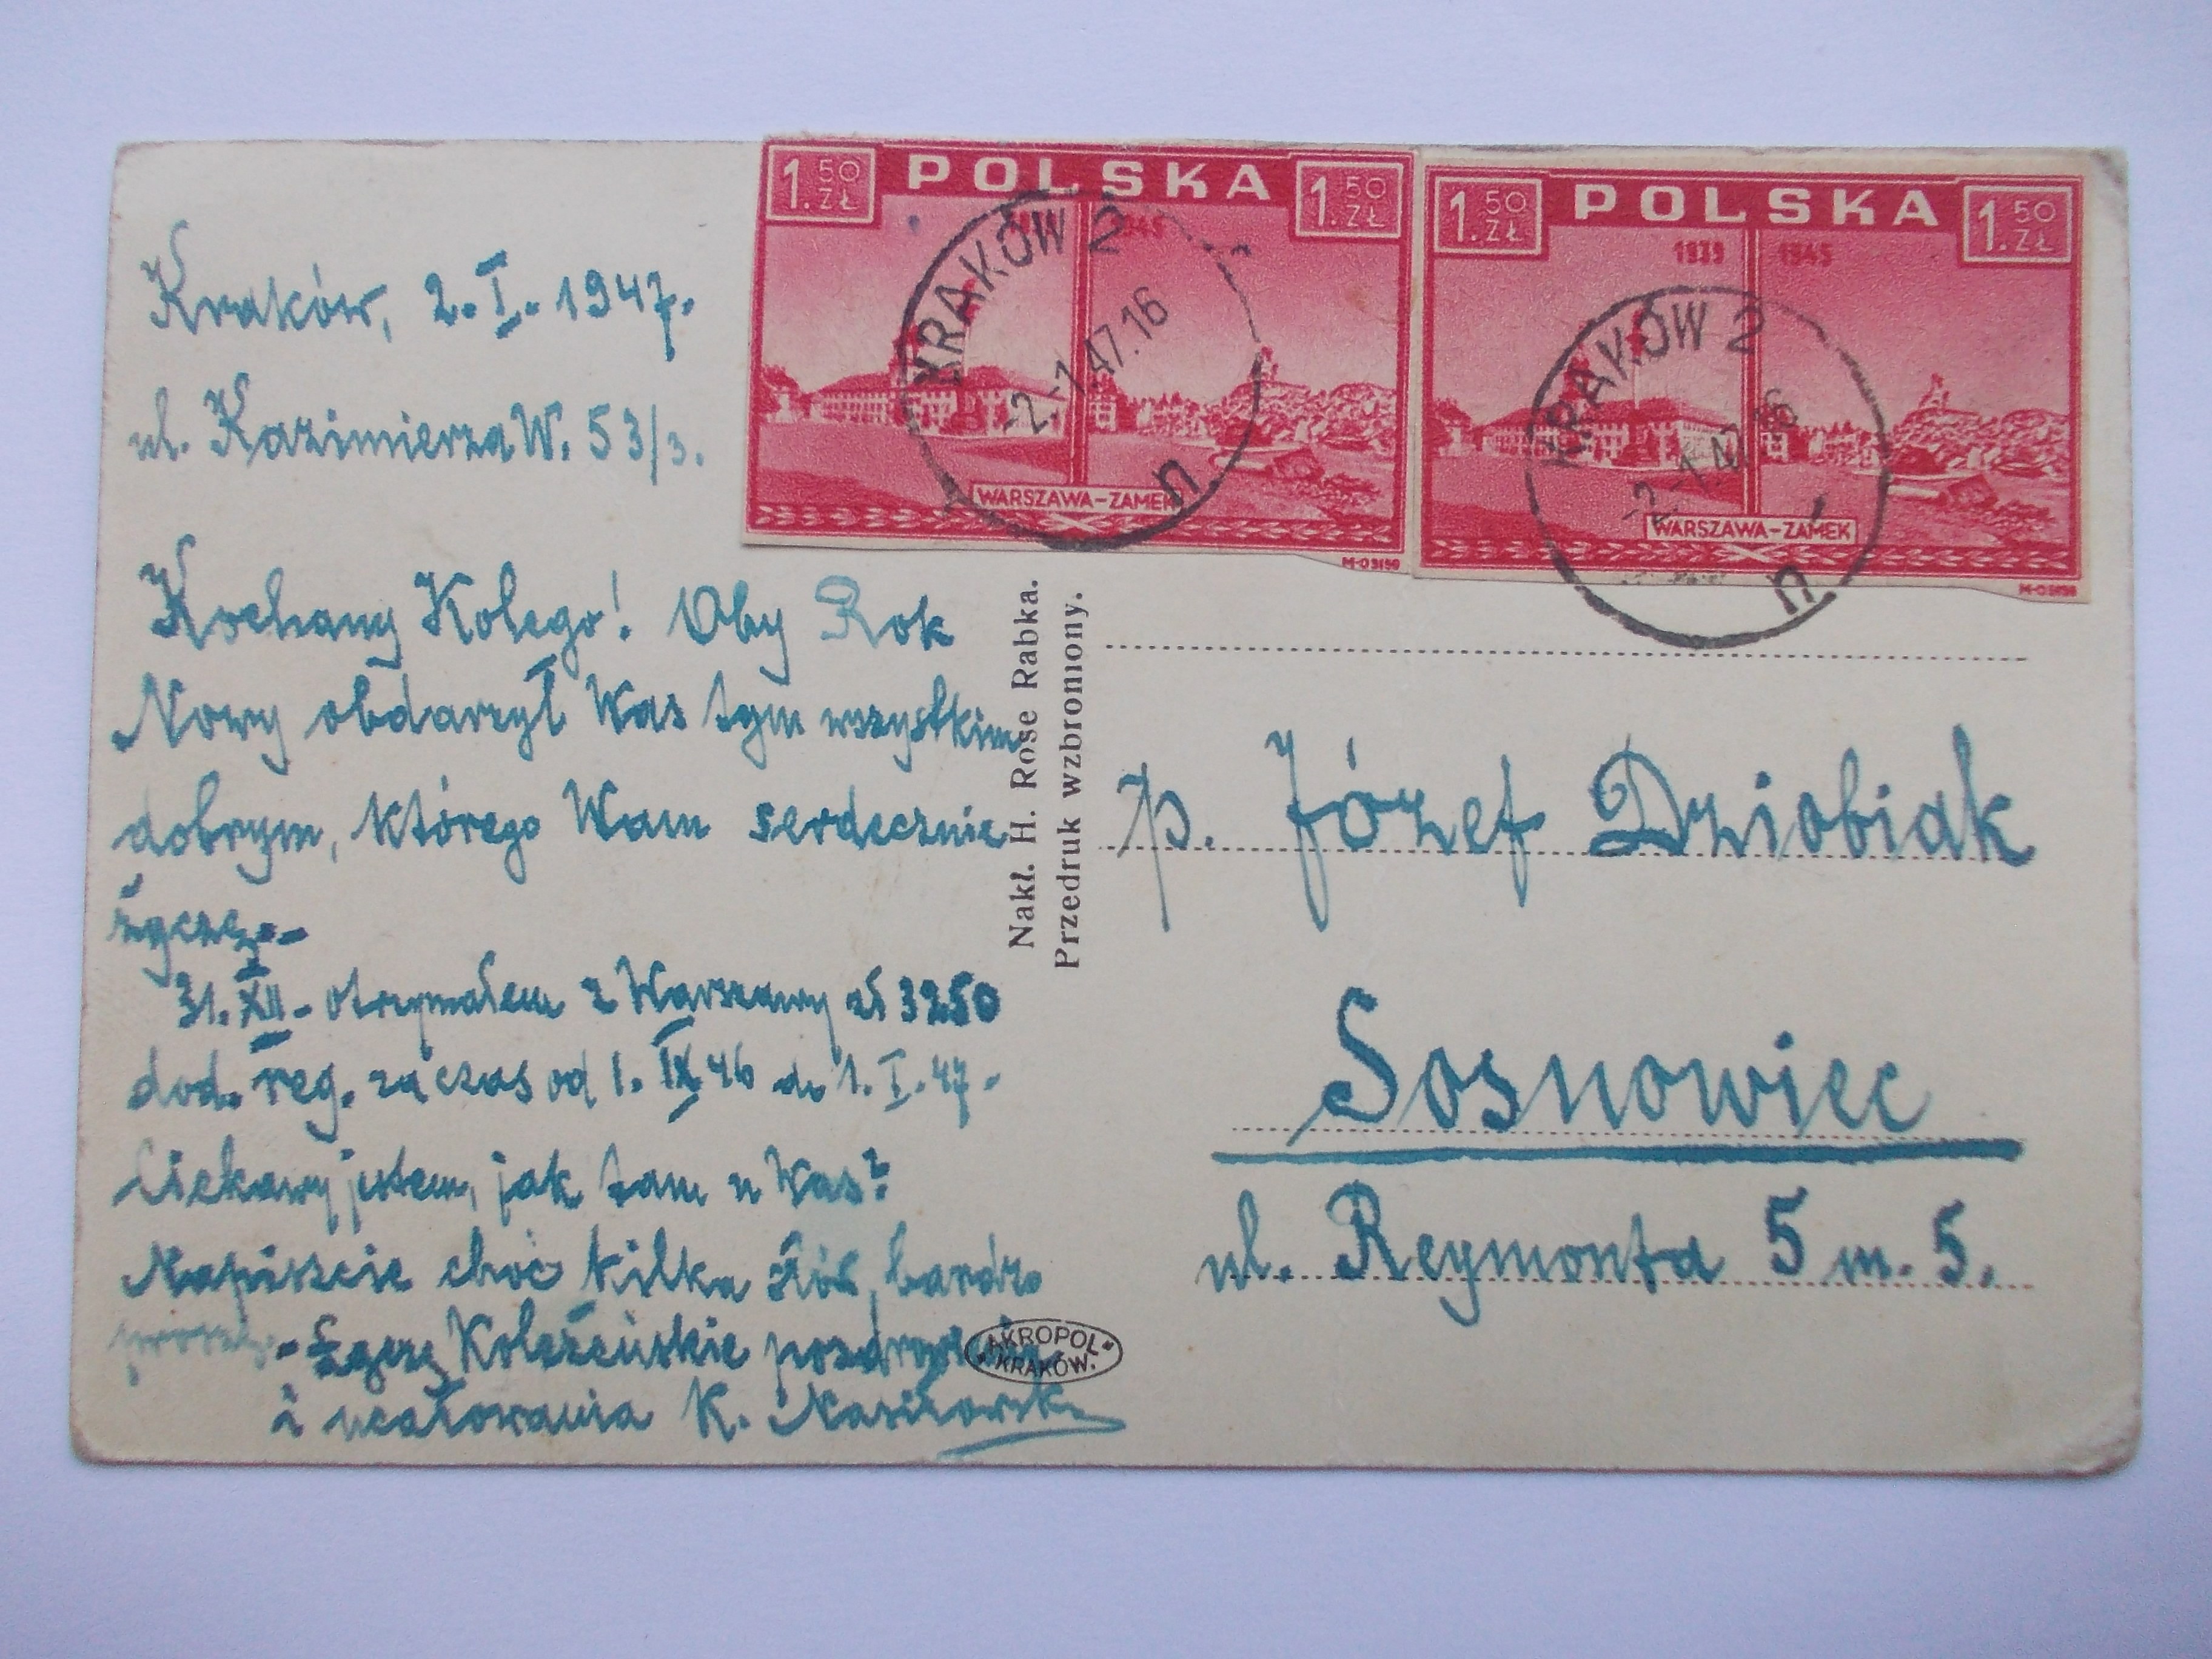 Kraków, 2. I. 1947.
ul. Kazimierza W. 53/3.
Kochany Kolego! Oby Rok
Nowy obdarzył Was tym wszystkim
dobrym, którego Wam serdecznie
życzę.-
31. XII - otrzymałem z Warszawy zł 3250
dod. reg. za czas od 1. IX 46 do 1. I. 47 -
Ciekawy jestem, jak tam u Was?
Napiszcie choć kilka słów, bardzo
proszę. - Łączę Koleżeńskie pozdrowienia
i ucałowania K.
1.50 ZŁ POLSKA 1.50 ZŁ
1945
WARSZAWA-ZAMEK
M-O 3159
KRAKÓW 2
-2.-1.47.16
n
1.50 ZŁ POLSKA 1.50 ZŁ
1939 1945
WARSZAWA-ZAMEK
KRAKÓW 2
-2.-1.47.16
n
Nakł. H. Rose Rabka.
Przedruk wzbroniony.
p. Józef Dziobiak
Sosnowiec
ul. Reymonta 5 m. 5.
AKROPOL
KRAKÓW.